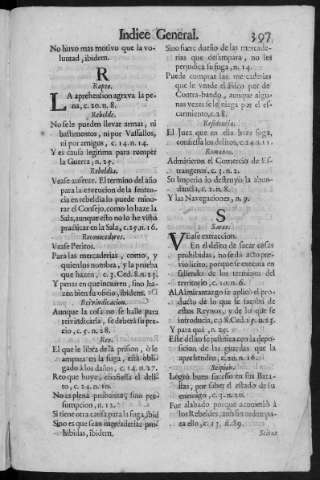 Indice General. 397
No huvo mas motivo que la vo-
luntad, ibidem.
R
Rapto.
LA aprehension agrava la pe-
na, c. 20. n. 8.
Rebelde.
No se le pueden llevar armas, ni
bastimentos, ni por Vassallos,
ni por amigos, c. 14. n. 14.
Y es causa legitima para romper
la Guerra, n. 25.
Rebeldia.
Vease ausente. El termino del año
para la execucion de la senten-
cia en rebeldia lo puede mino-
rar el Consejo, como lo haze la
Sala, aunque esto no lo he visto
practicar en la Sala, c. 25. n. 16.
Reconocedores.
Vease Peritos.
Para las mercaderias, como, y
quien los nombra, y la prueba
que hazen, c. 3. Ced. 8. n. 25.
Y penas en que incurren, sino ha-
zen bien su oficio, ibidem.
Reivindicacion.
Aunque la cosa no se halle para
reivindicarla, se deberà su pre-
cio, c. 5. n. 28.
Reo.
El que le libra de la prision, ò le
ampara en la fuga, està obli-
gado à los daños, c. 14. n. 27.
Reo que huye, confiessa el deli-
to, c. 24. n. 10.
No es plena probança, sino pre-
sumpcion, n. 12.
Si tiene otra causa para la fuga, ibid
Sino es que sean mercaderias pro-
hibidas, ibidem.
Sino fuere dueño de las mercade-
rias que desampara, no les
perjudica su fuga, n. 14.
Puede comprar las mercaderias
que le vende el Fisco por de
Contra-bando, aunque algu-
nas vezes se le niega por el es-
carmiento, c. 28.
Residencia.
El Juez que en ella haze fuga,
confiessa los delitos, c. 24. n. 11.
Romanos.
Admitieron el Comercio de Es-
trangeros, c. 3. n. 2.
Su Imperio lo destruyò la abun-
dancia, c. 2. n. 8.
Y las Navegaciones, n. 9.
S
Sacas.
VEase extraccion.
En el delito de sacar cosas
prohibidas, no se dà acto pre-
violicito, porque se executa en
saliendo de los terminos del
territorio, c. 10. n. 6.
Al Almirantazgo se aplicò el pro-
ducto de lo que se sacasse de
estos Reynos, y de lo que se
introducia, c. 3. 8. Ced. 1. n. 15.
Y para què, n. 25.
Este delito se justifica con la depo-
sicion de las guardas que la
aprehenden, c. 20. n. 16.
Scipion.
Logrò buen sucesso en sus Bata-
llas, por saber el estado de su
enemigo, c. 3. n. 20.
Fue alabado porque acometiò à
los Rebeldes, aun sin orden pa-
ra ello, c. 13. n. 89.